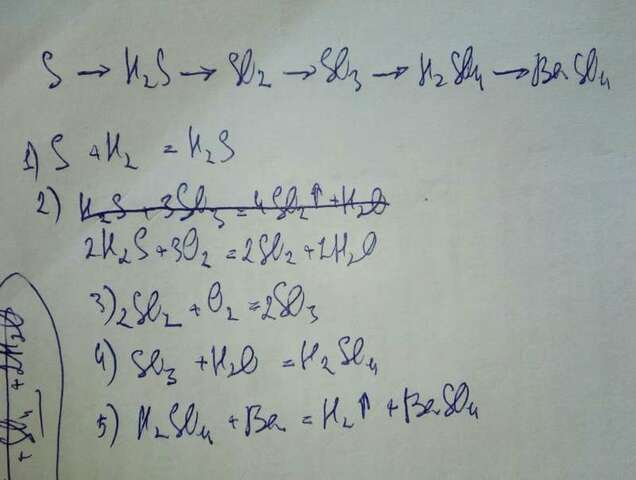 S → H₂S → SO₂ → SO₃ → H₂SO₄ → BaSO₄
1) S + H₂ = H₂S
2) H₂S + 3SO₃ = 4SO₂↑ + H₂O
2H₂S + 3O₂ = 2SO₂ + 2H₂O
3) 2SO₂ + O₂ = 2SO₃
4) SO₃ + H₂O = H₂SO₄
5) H₂SO₄ + Ba = H₂↑ + BaSO₄
+ SO₄ + 2H₂O